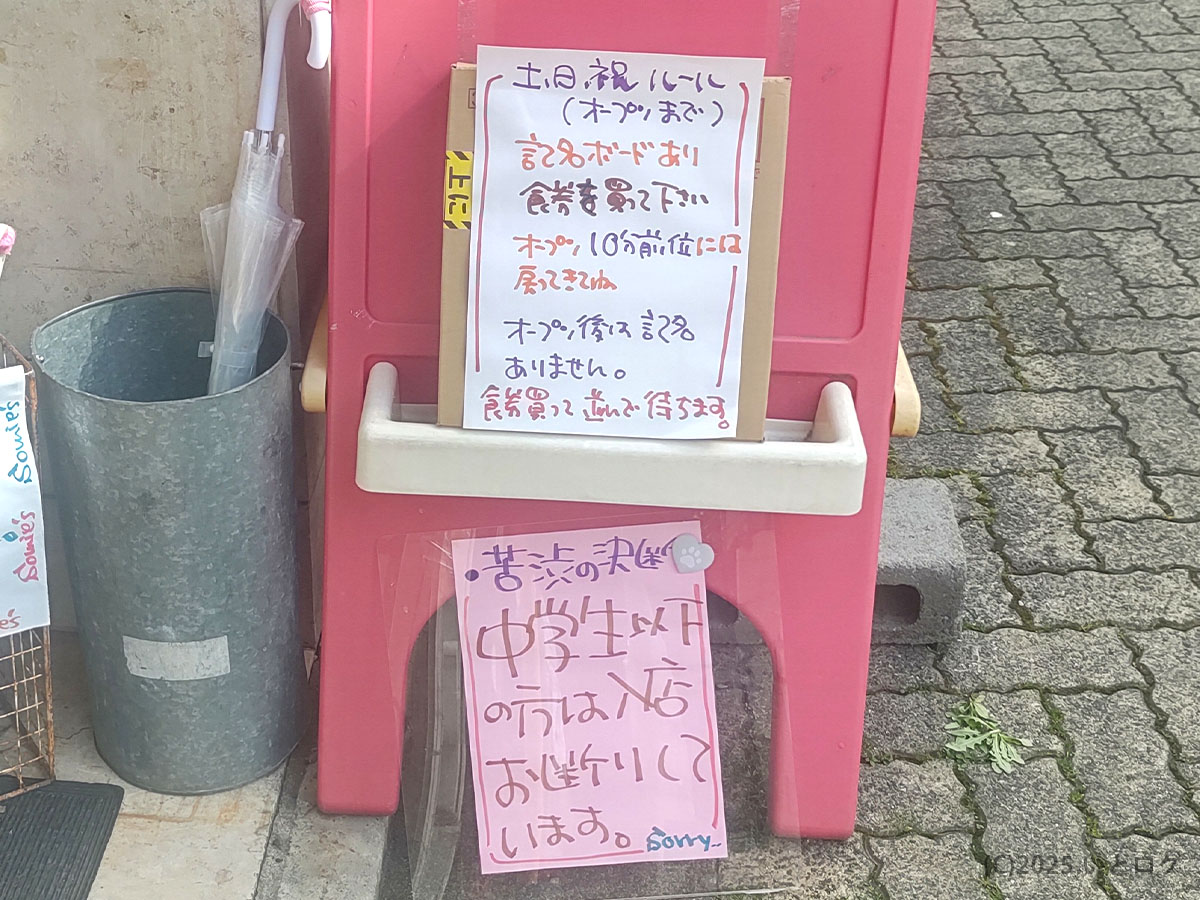 土、日、祝 ルール
（オープンまで）
記名ボードあり
食券を買って下さい
オープン10分前位には
戻ってきてね
オープン後は記名
ありません。
食券買って並んで待ちます。
に上
・苦渋の決断
中学生以下
の方は入店
お断りして
います。
Sorry~
Somie's
Somie's
(C)2025